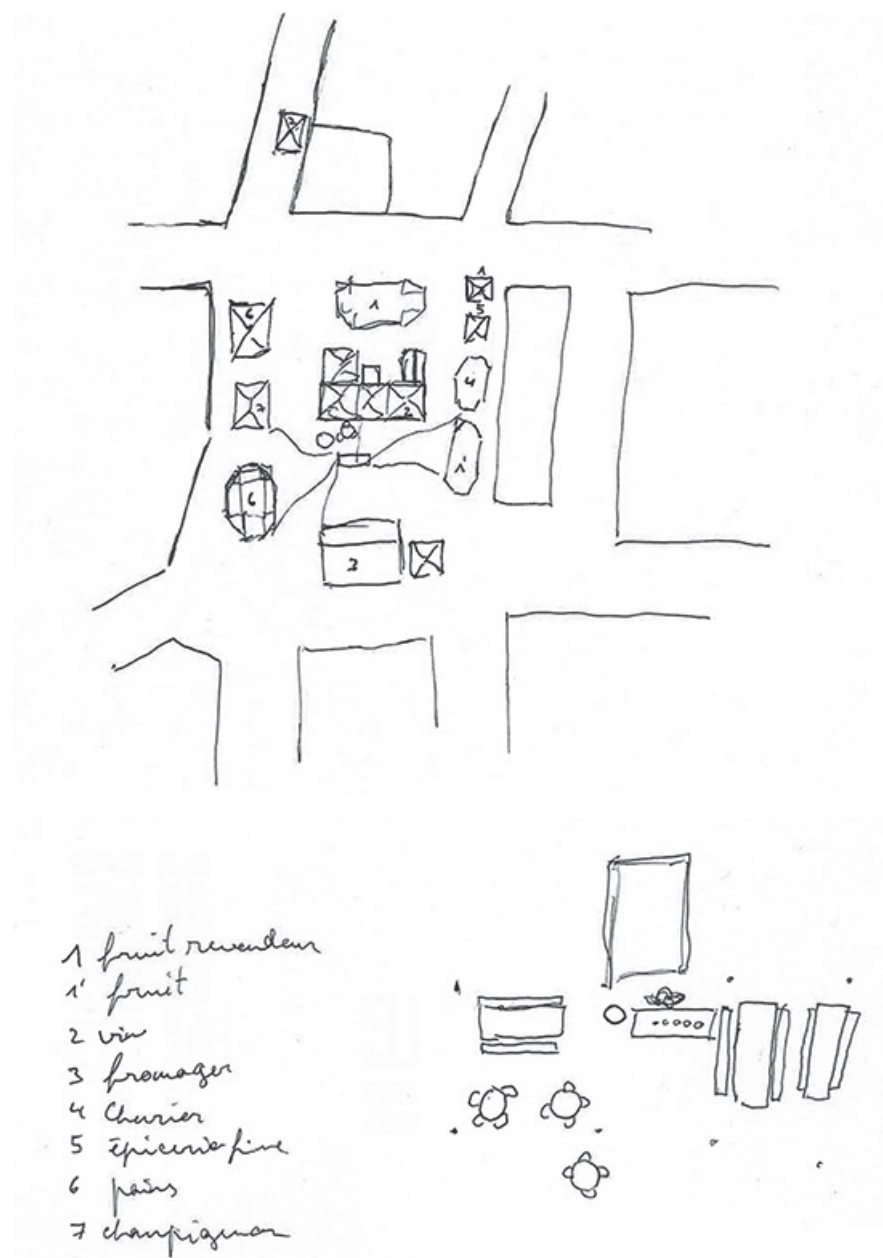 7
1
6
1
5
4
7
2
1'
6
3
1 fruit revendeur
1' fruit
2 vin
3 fromager
4 Churier
5 épicerie fine
6 pains
7 champignon